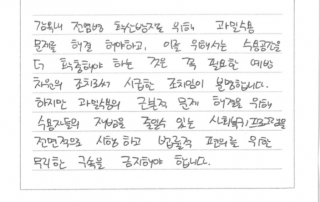 감옥내 전염병 확산방지를 위해 과밀수용
문제를 해결 해야하고, 이를 위해서는 수용공간을
더 확충해야 하는 것은 꼭 필요한 예방
차원의 조치로써 시급한 조치임이 분명합니다.
하지만 과밀수용의 근본적 문제 해결을 위해
수용자들의 재범을 줄일수 있는 사회복귀프로그램을
전면적으로 시행하고 법률적 편의를 위한
무작한 구속을 금지해야 합니다.